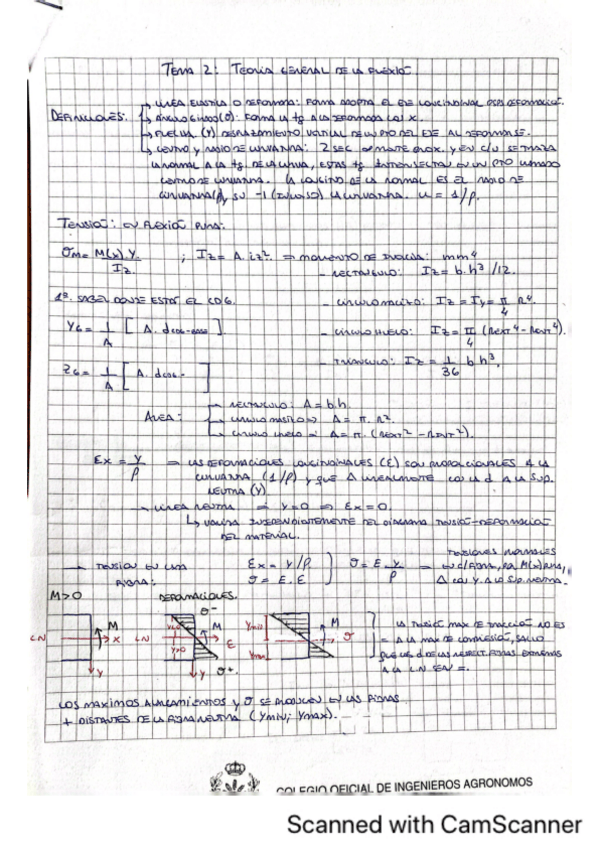 TEMA 2: TEORIA GENERAL DE LA FLEXIÓ
DEFINICIONES: → LINEA ELASTICA O DEFORMADA: FORMA ADOPTA EL EJE LONGITUDINAL DSPS DEFORMACIÓ.
→ ANGULO GIRADO (θ): FORMA LA tg A LA DEFORMADA CON X.
→ FLECHA (Y) DESPLAZAMIENTO VERTICAL DE UN PTO DEL EJE AL DEFORMARSE.
→ CENTRO Y RADIO DE CURVATURA: 2 SEC PROX. Y EN C/U SE TRAZA
LA NORMAL A LA tg. DE LA CURVA, ESTAS tg INTERSECTAN EN UN PTO LLAMADO
CENTRO DE CURVATURA. LA LONGITUD DE LA NORMAL ES EL RADIO DE
CURVATURA (ρ) y SU -1 (INVERSO) LA CURVATURA. u = 1/ρ.
TENSIÓ: EN FLEXIÓ PURA:
σM = M(x).Y. / Iz. ; Iz = A. iz². ⇒ MOMENTO DE INERCIA: mm⁴
- RECTANGULO: Iz = b.h³/12.
1º. SABER DONDE ESTÁ EL CDG.
- CIRCULO MACIZO: Iz = Iy = π/4 R⁴.
YG = 1/A [ A. dCDG-BASE ]
- CIRCULO HUECO: Iz = π/4 (REXT⁴ - RINT⁴).
ZG = 1/A [ A. dCDG- ]
- TRIANGULO: Iz = 1/36 b h³.
AREA: → RECTANGULO: A = b.h.
→ CIRCULO MACIZO ⇒ A = π. R².
→ CIRCULO HUECO ⇒ A = π. (REXT² - RINT²).
εx = Y/ρ ⇒ LAS DEFORMACIONES LONGITUDINALES (ε) SON PROPORCIONALES A LA
CURVATURA (1/ρ) y QUE Δ LINEALMENTE CON LA d A LA SUP.
NEUTRA (Y).
→ LINEA NEUTRA ⇒ Y=0 ⇒ εx = 0.
↳ VALIDA INDEPENDIENTEMENTE DEL DIAGRAMA TENSIÓ-DEFORMACIÓ
DEL MATERIAL.
→ TENSION EN UNA FIBRA: εx = Y/ρ. σ = E. ε } σ = E Y/ρ ⇒ TENSIONES NORMALES
EN C/FIBRA, Δ CON Y A LA SUP. NEUTRA.
M>0 DEFORMACIONES.
LN M X Y
LN Y<0 Y>0 σ- M ε σ+
Ymin Ymax M σ
LA TENSIÓ MAX DE TRACCIÓ NO ES
= A LA MAX DE COMPRESIÓ, SALVO
QUE LAS d DE LAS RESPECT. FIBRAS EXTREMAS
A LA LN SEAN =.
LOS MAXIMOS ALARGAMIENTOS y σ SE PRODUCEN EN LAS FIBRAS
+ DISTANTES DE LA FIBRA NEUTRA (Ymin; Ymax).
COLEGIO OFICIAL DE INGENIEROS AGRONOMOS
Scanned with CamScanner